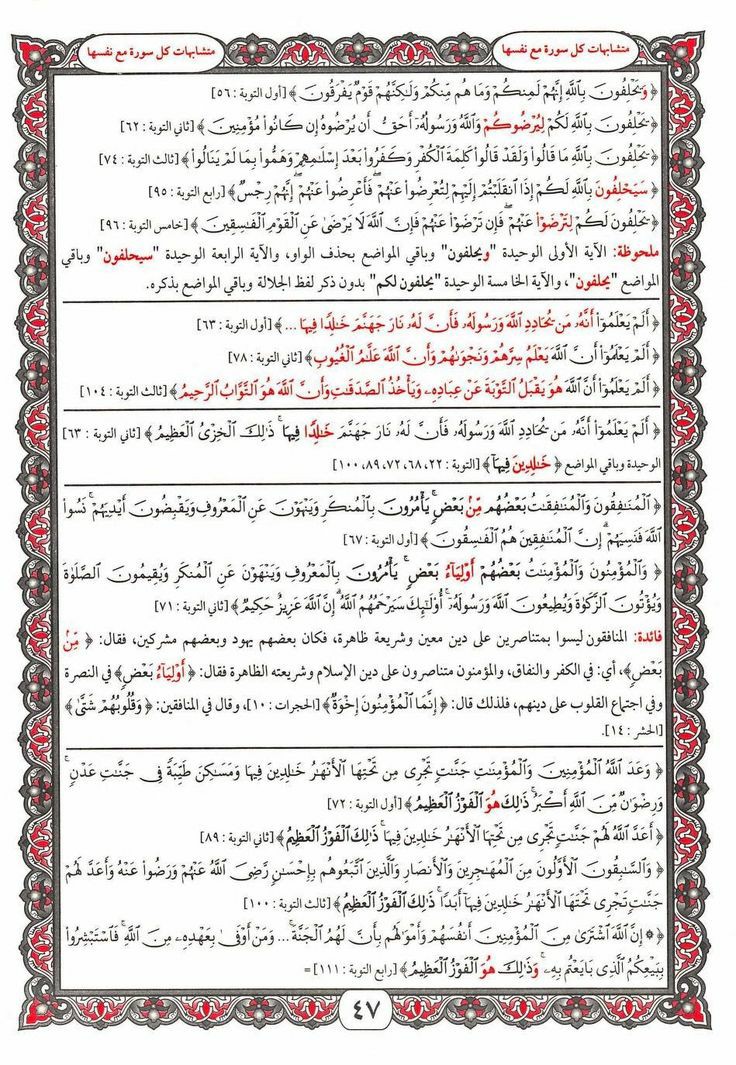 متشابهات كل سورة مع نفسها
متشابهات كل سورة مع نفسها
﴿ وَيَحْلِفُونَ بِٱللَّهِ إِنَّهُمْ لَمِنكُمْ وَمَا هُم مِّنكُمْ وَلَٰكِنَّهُمْ قَوْمٌ يَفْرَقُونَ ﴾ [أول التوبة : ٥٦]
﴿ يَحْلِفُونَ بِٱللَّهِ لَكُمْ لِيُرْضُوكُمْ وَٱللَّهُ وَرَسُولُهُۥٓ أَحَقُّ أَن يُرْضُوهُ إِن كَانُوا۟ مُؤْمِنِينَ ﴾ [ثاني التوبة : ٦٢]
﴿ يَحْلِفُونَ بِٱللَّهِ مَا قَالُوا۟ وَلَقَدْ قَالُوا۟ كَلِمَةَ ٱلْكُفْرِ وَكَفَرُوا۟ بَعْدَ إِسْلَٰمِهِمْ وَهَمُّوا۟ بِمَا لَمْ يَنَالُوا۟ ﴾ [ثالث التوبة : ٧٤]
﴿ سَيَحْلِفُونَ بِٱللَّهِ لَكُمْ إِذَا ٱنقَلَبْتُمْ إِلَيْهِمْ لِتُعْرِضُوا۟ عَنْهُمْ ۖ فَأَعْرِضُوا۟ عَنْهُمْ ۖ إِنَّهُمْ رِجْسٌ ﴾ [رابع التوبة : ٩٥]
﴿ يَحْلِفُونَ لَكُمْ لِتَرْضَوْا۟ عَنْهُمْ ۖ فَإِن تَرْضَوْا۟ عَنْهُمْ فَإِنَّ ٱللَّهَ لَا يَرْضَىٰ عَنِ ٱلْقَوْمِ ٱلْفَٰسِقِينَ ﴾ [خامس التوبة : ٩٦]
ملحوظة: الآية الأولى الوحيدة "ويحلفون" وباقي المواضع بحذف الواو، والآية الرابعة الوحيدة "سيحلفون" وباقي
المواضع "يحلفون"، والآية الخامسة الوحيدة "يحلفون لكم" بدون ذكر لفظ الجلالة وباقي المواضع بذكره.
﴿ أَلَمْ يَعْلَمُوٓا۟ أَنَّهُۥ مَن يُحَادِدِ ٱللَّهَ وَرَسُولَهُۥ فَأَنَّ لَهُۥ نَارَ جَهَنَّمَ خَٰلِدًا فِيهَا ... ﴾ [أول التوبة : ٦٣]
﴿ أَلَمْ يَعْلَمُوٓا۟ أَنَّ ٱللَّهَ يَعْلَمُ سِرَّهُمْ وَنَجْوَىٰهُمْ وَأَنَّ ٱللَّهَ عَلَّٰمُ ٱلْغُيُوبِ ﴾ [ثاني التوبة : ٧٨]
﴿ أَلَمْ يَعْلَمُوٓا۟ أَنَّ ٱللَّهَ هُوَ يَقْبَلُ ٱلتَّوْبَةَ عَنْ عِبَادِهِۦ وَيَأْخُذُ ٱلصَّدَقَٰتِ وَأَنَّ ٱللَّهَ هُوَ ٱلتَّوَّابُ ٱلرَّحِيمُ ﴾ [ثالث التوبة : ١٠٤]
﴿ أَلَمْ يَعْلَمُوٓا۟ أَنَّهُۥ مَن يُحَادِدِ ٱللَّهَ وَرَسُولَهُۥ فَأَنَّ لَهُۥ نَارَ جَهَنَّمَ خَٰلِدًا فِيهَا ۚ ذَٰلِكَ ٱلْخِزْىُ ٱلْعَظِيمُ ﴾ [ثاني التوبة : ٦٣]
الوحيدة وباقي المواضع ﴿ خَٰلِدِينَ فِيهَآ ﴾ [التوبة : ٢٢، ٦٨، ٧٢، ٨٩، ١٠٠]
﴿ ٱلْمُنَٰفِقُونَ وَٱلْمُنَٰفِقَٰتُ بَعْضُهُم مِّنۢ بَعْضٍ ۚ يَأْمُرُونَ بِٱلْمُنكَرِ وَيَنْهَوْنَ عَنِ ٱلْمَعْرُوفِ وَيَقْبِضُونَ أَيْدِيَهُمْ ۚ نَسُوا۟
ٱللَّهَ فَنَسِيَهُمْ ۗ إِنَّ ٱلْمُنَٰفِقِينَ هُمُ ٱلْفَٰسِقُونَ ﴾ [أول التوبة : ٦٧]
﴿ وَٱلْمُؤْمِنُونَ وَٱلْمُؤْمِنَٰتُ بَعْضُهُمْ أَوْلِيَآءُ بَعْضٍ ۚ يَأْمُرُونَ بِٱلْمَعْرُوفِ وَيَنْهَوْنَ عَنِ ٱلْمُنكَرِ وَيُقِيمُونَ ٱلصَّلَوٰةَ
وَيُؤْتُونَ ٱلزَّكَوٰةَ وَيُطِيعُونَ ٱللَّهَ وَرَسُولَهُۥٓ ۚ أُو۟لَٰٓئِكَ سَيَرْحَمُهُمُ ٱللَّهُ ۗ إِنَّ ٱللَّهَ عَزِيزٌ حَكِيمٌ ﴾ [ثاني التوبة : ٧١]
فائدة: المنافقون ليسوا بمتناصرين على دين معين وشريعة ظاهرة، فكان بعضهم يهود وبعضهم مشركين، فقال: ﴿ مِّنۢ
بَعْضٍ ﴾، أي: في الكفر والنفاق، والمؤمنون متناصرون على دين الإسلام وشريعته الظاهرة فقال: ﴿ أَوْلِيَآءُ بَعْضٍ ﴾ في النصرة
وفي اجتماع القلوب على دينهم، فلذلك قال: ﴿ إِنَّمَا ٱلْمُؤْمِنُونَ إِخْوَةٌ ﴾ [الحجرات : ١٠]، وقال في المنافقين: ﴿ وَقُلُوبُهُمْ شَتَّىٰ ﴾
[الحشر : ١٤].
﴿ وَعَدَ ٱللَّهُ ٱلْمُؤْمِنِينَ وَٱلْمُؤْمِنَٰتِ جَنَّٰتٍ تَجْرِى مِن تَحْتِهَا ٱلْأَنْهَٰرُ خَٰلِدِينَ فِيهَا وَمَسَٰكِنَ طَيِّبَةً فِى جَنَّٰتِ عَدْنٍ ۚ
وَرِضْوَٰنٌ مِّنَ ٱللَّهِ أَكْبَرُ ۚ ذَٰلِكَ هُوَ ٱلْفَوْزُ ٱلْعَظِيمُ ﴾ [أول التوبة : ٧٢]
﴿ أَعَدَّ ٱللَّهُ لَهُمْ جَنَّٰتٍ تَجْرِى مِن تَحْتِهَا ٱلْأَنْهَٰرُ خَٰلِدِينَ فِيهَا ۚ ذَٰلِكَ ٱلْفَوْزُ ٱلْعَظِيمُ ﴾ [ثاني التوبة : ٨٩]
﴿ وَٱلسَّٰبِقُونَ ٱلْأَوَّلُونَ مِنَ ٱلْمُهَٰجِرِينَ وَٱلْأَنصَارِ وَٱلَّذِينَ ٱتَّبَعُوهُم بِإِحْسَٰنٍ رَّضِىَ ٱللَّهُ عَنْهُمْ وَرَضُوا۟ عَنْهُ وَأَعَدَّ لَهُمْ
جَنَّٰتٍ تَجْرِى تَحْتَهَا ٱلْأَنْهَٰرُ خَٰلِدِينَ فِيهَآ أَبَدًا ۚ ذَٰلِكَ ٱلْفَوْزُ ٱلْعَظِيمُ ﴾ [ثالث التوبة : ١٠٠]
﴿ ۞ إِنَّ ٱللَّهَ ٱشْتَرَىٰ مِنَ ٱلْمُؤْمِنِينَ أَنفُسَهُمْ وَأَمْوَٰلَهُم بِأَنَّ لَهُمُ ٱلْجَنَّةَ ۚ ... وَمَنْ أَوْفَىٰ بِعَهْدِهِۦ مِنَ ٱللَّهِ ۚ فَٱسْتَبْشِرُوا۟
بِبَيْعِكُمُ ٱلَّذِى بَايَعْتُم بِهِۦ ۚ وَذَٰلِكَ هُوَ ٱلْفَوْزُ ٱلْعَظِيمُ ﴾ [رابع التوبة : ١١١] =
٤٧